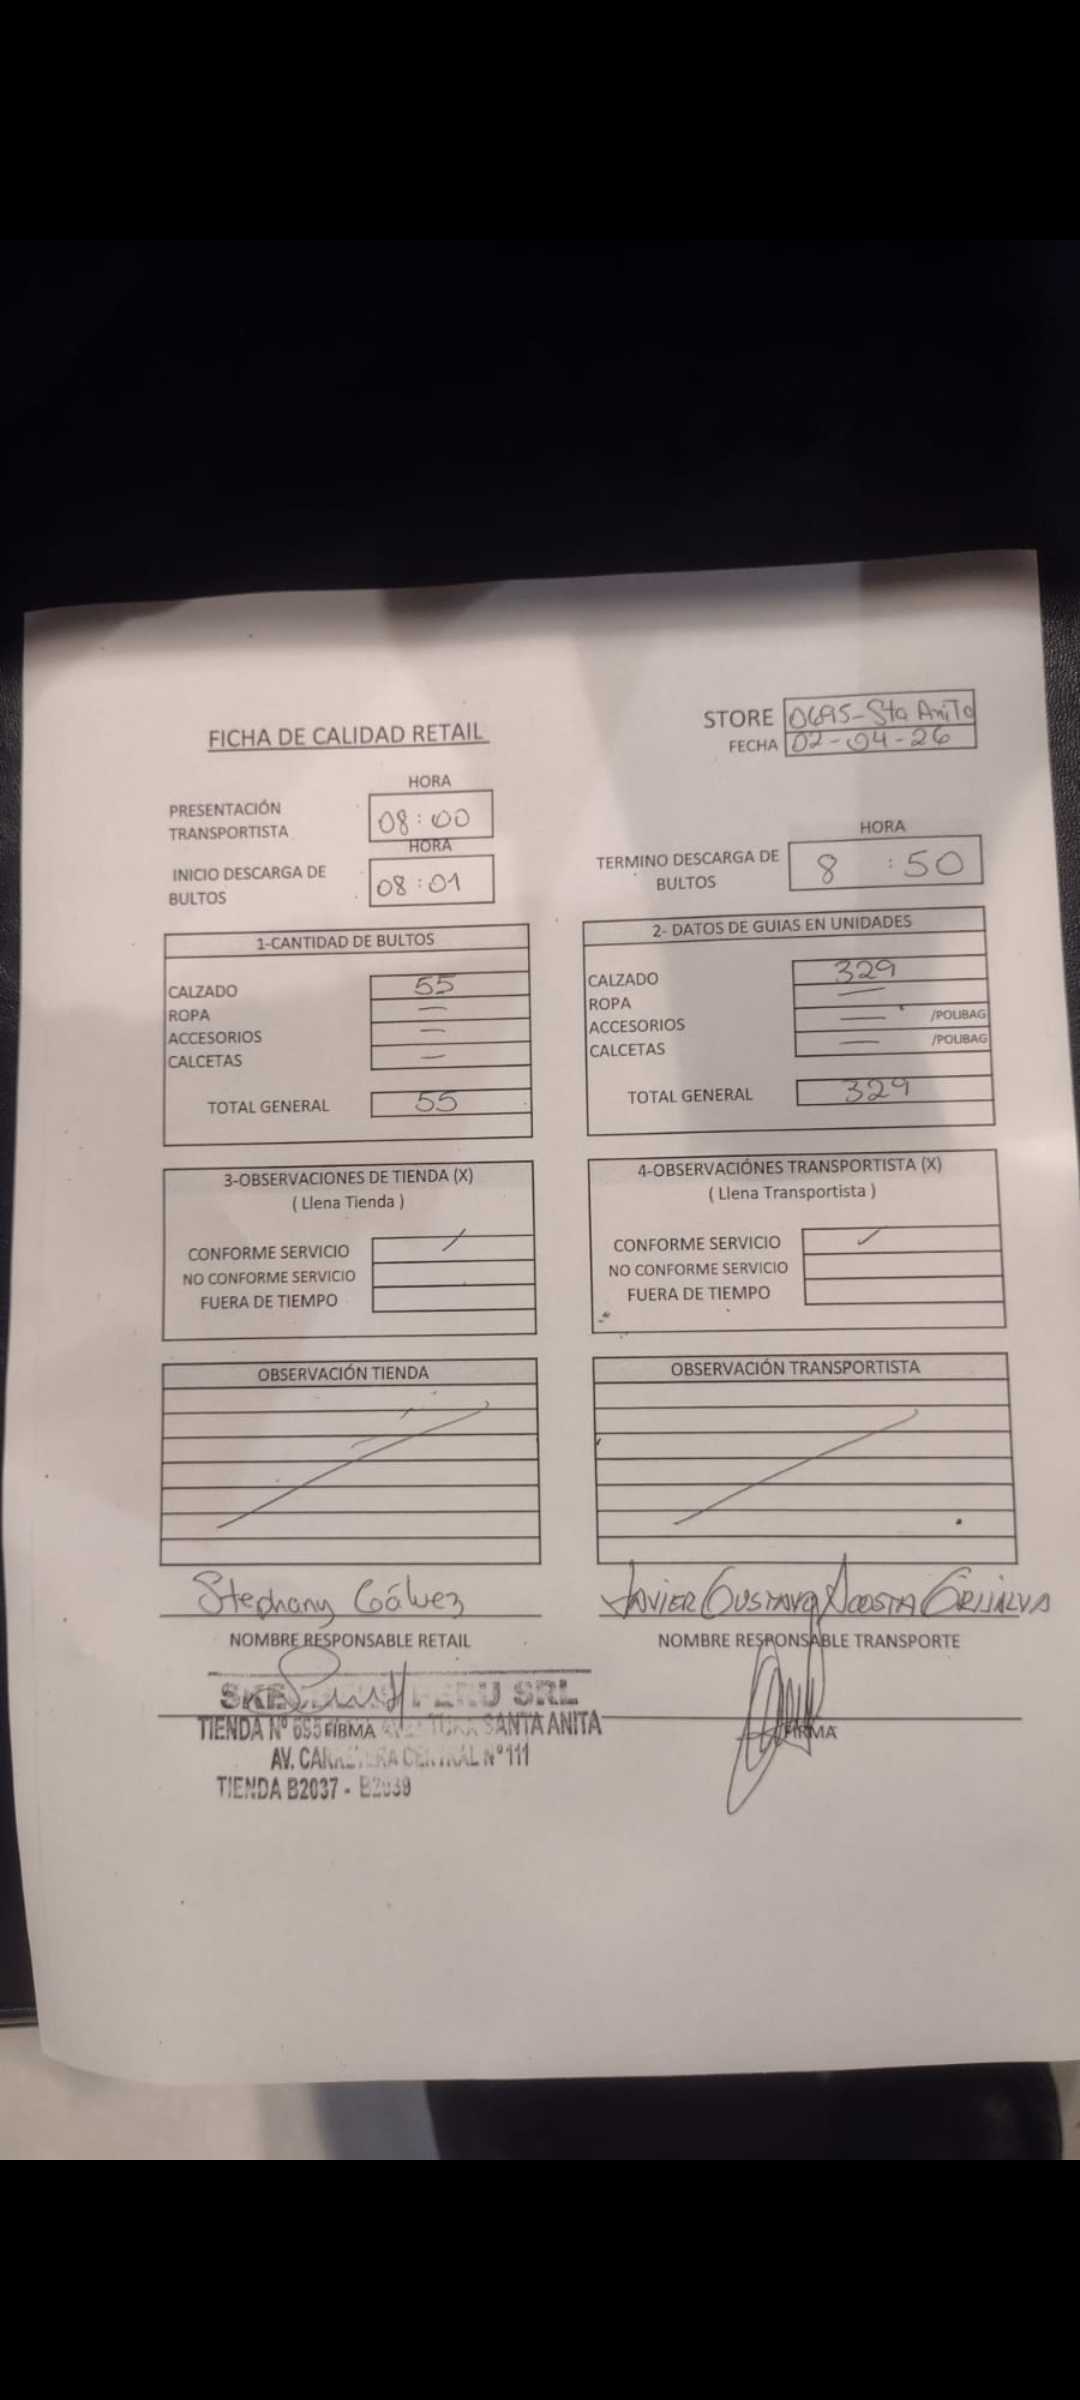 STORE 0695-Sta Anita
FICHA DE CALIDAD RETAIL
FECHA 02-04-26
HORA
PRESENTACIÓN TRANSPORTISTA 08:00
HORA
INICIO DESCARGA DE BULTOS 08:01
HORA
TERMINO DESCARGA DE BULTOS 8:50
1-CANTIDAD DE BULTOS
CALZADO 55
ROPA —
ACCESORIOS —
CALCETAS —
TOTAL GENERAL 55
2- DATOS DE GUIAS EN UNIDADES
CALZADO 329
ROPA —
ACCESORIOS — /POLIBAG
CALCETAS — /POLIBAG
TOTAL GENERAL 329
3-OBSERVACIONES DE TIENDA (X)
( Llena Tienda )
CONFORME SERVICIO /
NO CONFORME SERVICIO
FUERA DE TIEMPO
4-OBSERVACIÓNES TRANSPORTISTA (X)
( Llena Transportista )
CONFORME SERVICIO ✓
NO CONFORME SERVICIO
FUERA DE TIEMPO
OBSERVACIÓN TIENDA
OBSERVACIÓN TRANSPORTISTA
Stephany Gálvez
NOMBRE RESPONSABLE RETAIL
JAVIER GUSTAVO ACOSTA GRIJALVA
NOMBRE RESPONSABLE TRANSPORTE
PERU SRL
FIRMA
TIENDA Nº 695 SANTA ANITA
AV. CARRETERA CENTRAL Nº 111
TIENDA B2037 - B2039
FIRMA